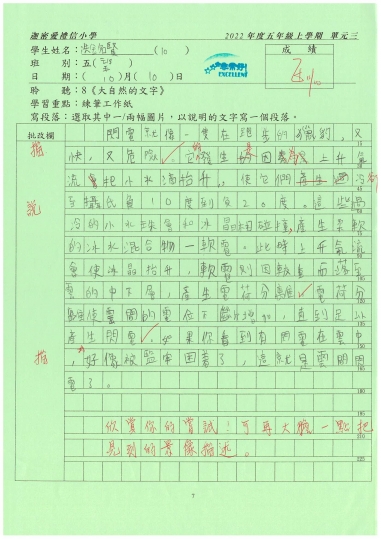 迦密愛禮信小學 2022年度五年級上學期 單元三
學生姓名：(10) 成績
班別：五( )
日期：(10)月(10)日 EXCELLENT
聆聽：8《大自然的文字》
學習重點：練筆工作紙
寫段落：選取其中一/兩幅圖片，以說明的文字寫一個段落。
批改欄 閃電就像一隻在跑的獵豹，又
描 快，又危險。它發生是因為上升氣
流會把小水滴抬升，使它們
至攝氏負10度到負20度。這些過
說 冷的小水珠會和冰晶相碰撞，產生柔軟
的冰水混合物—軟雹。此時上升氣流
會使冰晶抬升，軟雹則因較重而落至
雲的中下層，產生電荷分離，電荷分
離使雲間的電位不斷增加，直到足以
產生閃電。如果你看到有閃電在雲中
描 ，好像被監牢困着了，這就是雲間閃
電了。
欣賞你的嘗試！可再大膽一點把
見到的景像描述。
7